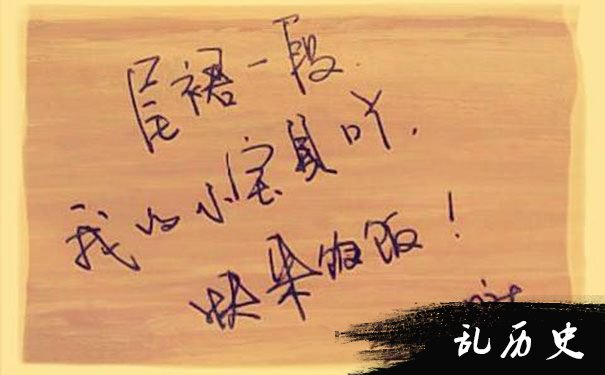 尾裙一段.
我的小宝贝吖,
快来饭!
乱历史